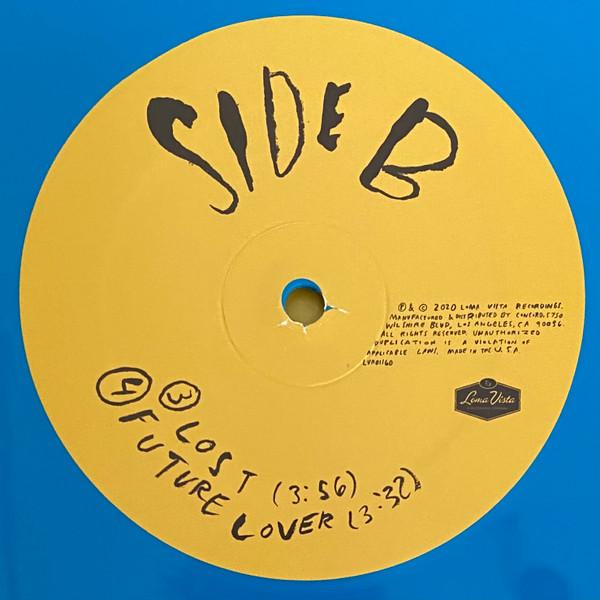 SIDE B
℗ & © 2020 LOMA VISTA RECORDINGS.
MANUFACTURED & DISTRIBUTED BY CONCORD, 5750
WILSHIRE BLVD, LOS ANGELES, CA 90036.
ALL RIGHTS RESERVED. UNAUTHORIZED
DUPLICATION IS A VIOLATION OF
APPLICABLE LAWS. MADE IN THE U.S.A.
LVR01160
Loma Vista
3 LOST (3:56)
4 FUTURE LOVER (3:32)